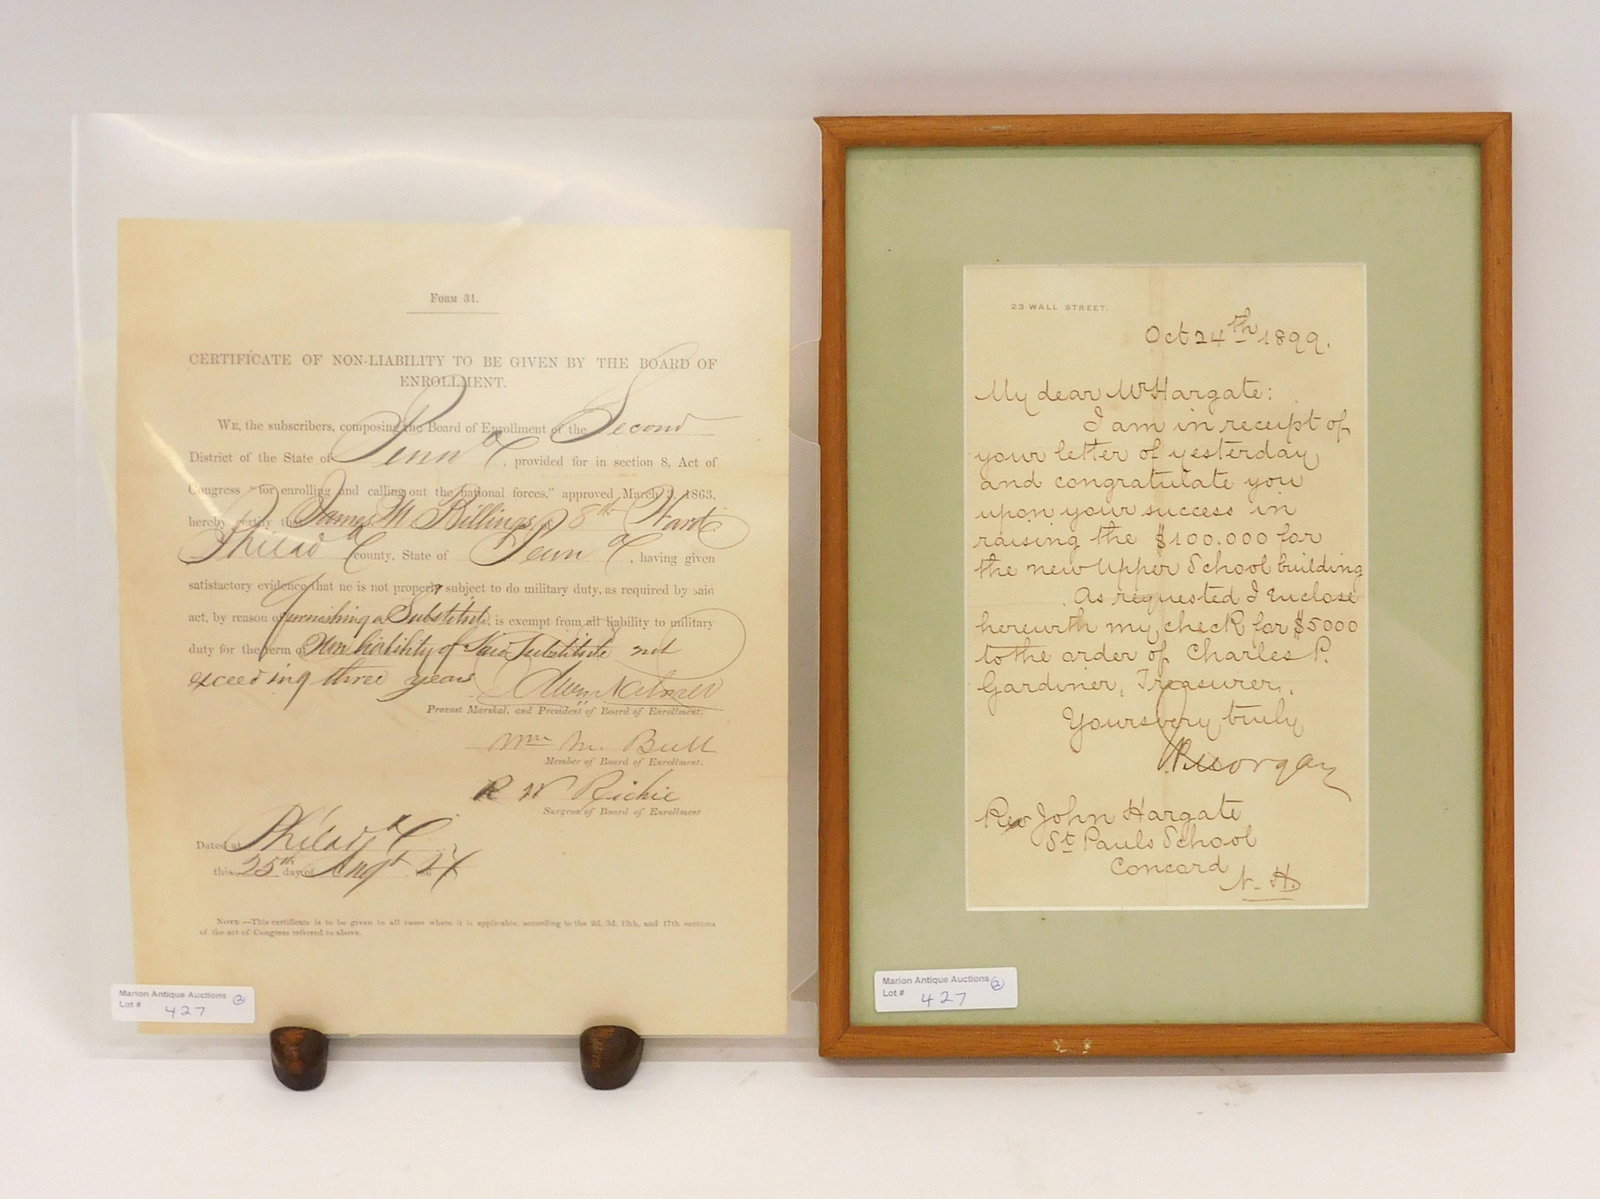 FORM 31.
CERTIFICATE OF NON-LIABILITY TO BE GIVEN BY THE BOARD OF
ENROLLMENT.
WE, the subscribers, composing the Board of Enrollment of the Second
District of the State of Penna, provided for in section 8, Act of
Congress "for enrolling and calling out the national forces," approved March 3, 1863,
hereby certify that James M Billings, 8th Ward
Philada county, State of Penna, having given
satisfactory evidence that he is not properly subject to do military duty, as required by said
act, by reason of furnishing a Substitute, is exempt from all liability to military
duty for the term of Non liability of Said Substitute not
exceeding three years
Provost Marshal, and President of Board of Enrollment.
Wm M. Bull
Member of Board of Enrollment.
R W Richie
Surgeon of Board of Enrollment
Dated at Philada
this 25th day of Augt
NOTE.—This certificate is to be given in all cases where it is applicable, according to the 2d, 3d, 13th, and 17th sections
of the act of Congress referred to above.
Marion Antique Auctions 2
Lot # 427
23 WALL STREET.
Oct 24th 1899.
My dear Mr Hargate:
I am in receipt of
your letter of yesterday
and congratulate you
upon your success in
raising the $100.000 for
the new Upper School building
As requested I enclose
herewith my check for $5000
to the order of Charles P.
Gardiner, Treasurer.
Yours very truly
Morgan
Rev John Hargate
St Pauls School
Concord
N. H.
Marion Antique Auctions 2
Lot # 427